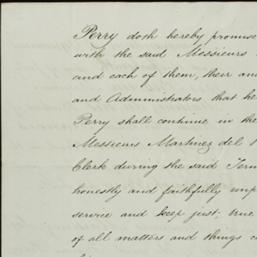 Perry doth hereby promise
with the said Messieurs
and each of them, their
and Administrators that he
Perry shall continue in the
Messieurs Martinez del
Clerk during the said Term
honestly and faithfully
service and keep just, true
of all matters and things